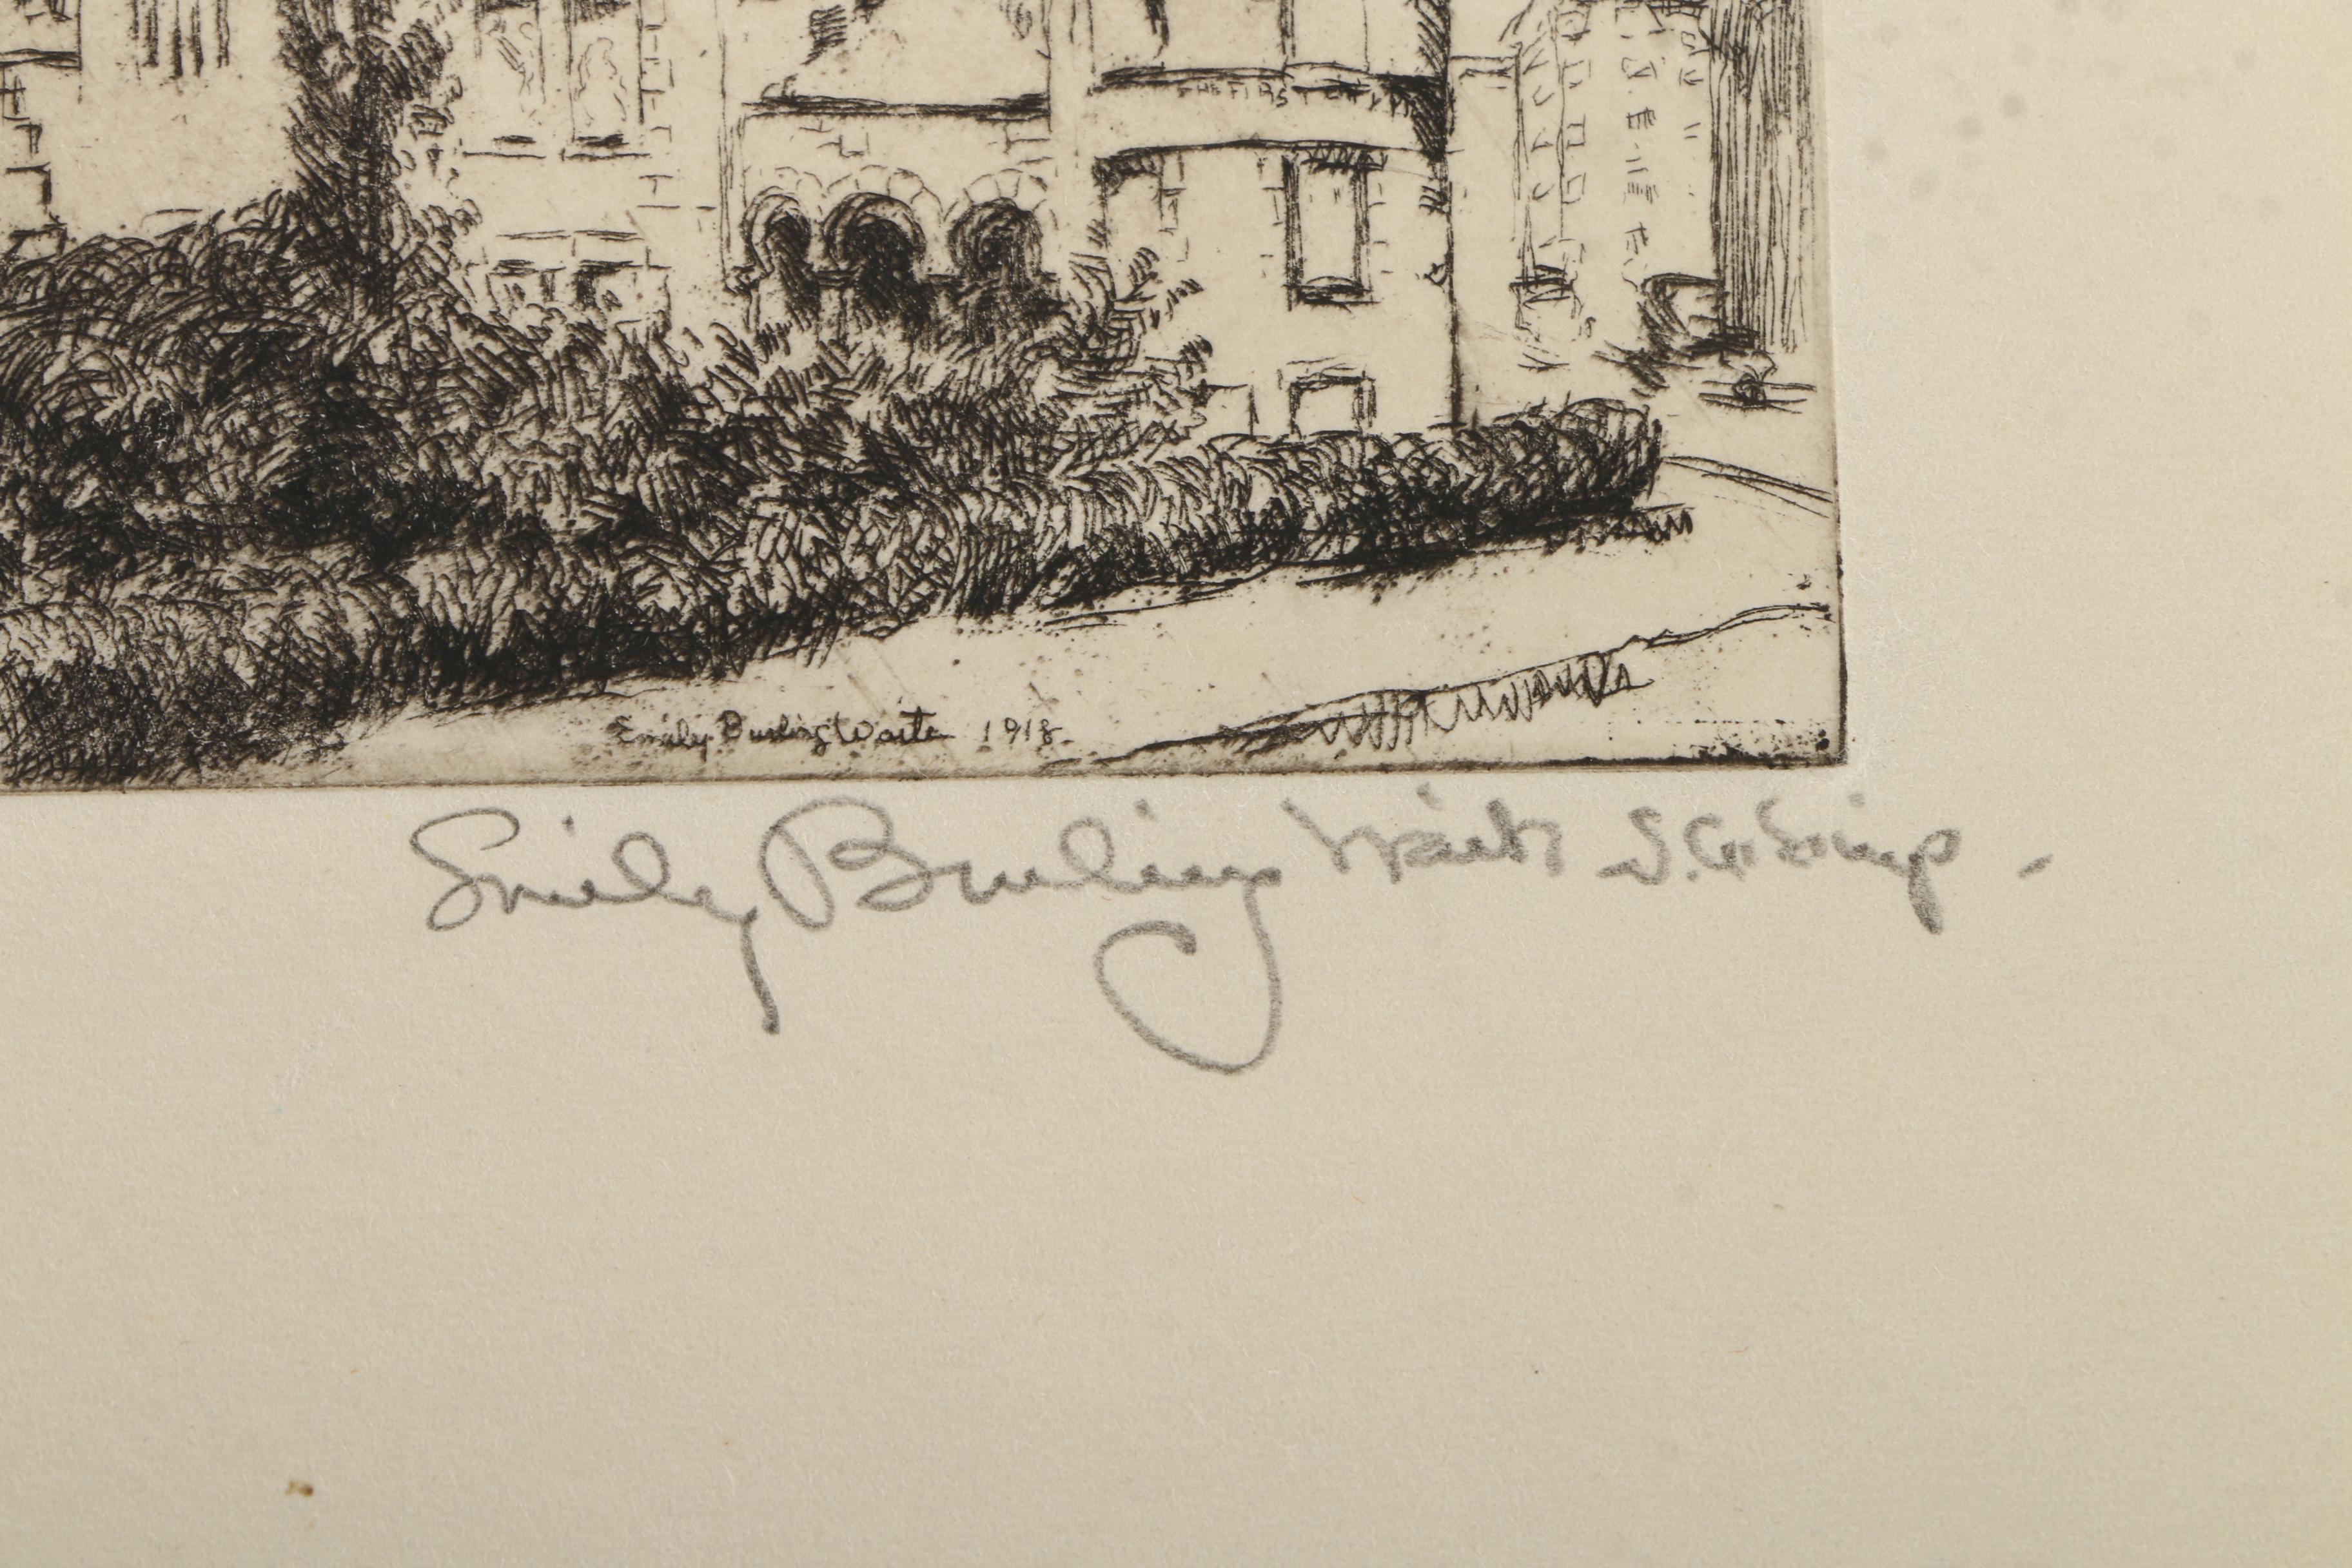 THE FIRST
Emily Burling Waite 1918
Emily Burling Waite S.G. Imp -